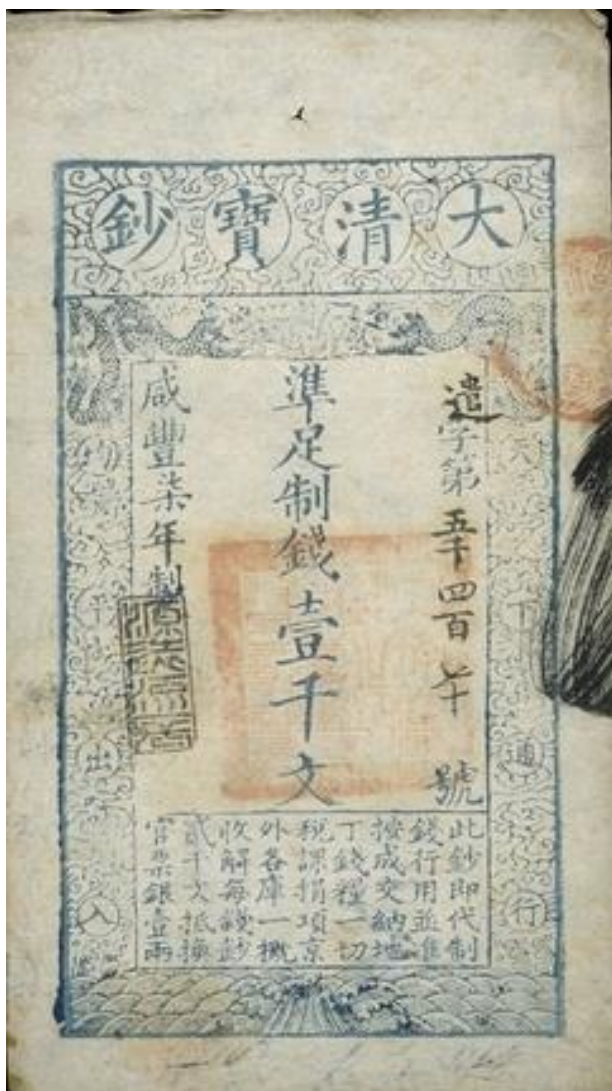 大清寶鈔
天下通行
遣字第五千四百 號
準足制錢壹千文
咸豐柒年製
均平出入
此鈔即代制
錢行用並準
按成交納地
丁錢糧一切
稅課捐項京
外各庫一概
收解每錢鈔
貳千文抵換
官票銀壹兩